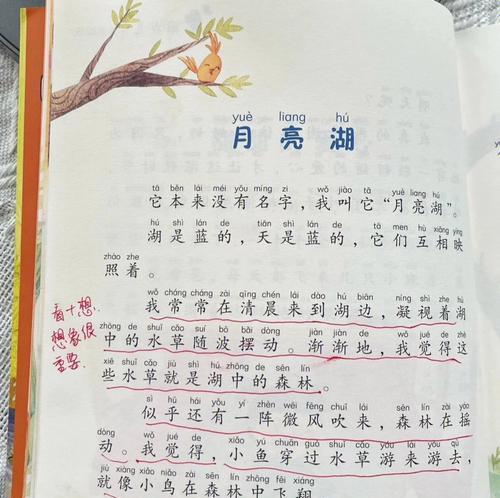 yuè liang hú
月亮湖
tā běn lái méi yǒu míng zi wǒ jiào tā yuè liang hú
它本来没有名字，我叫它“月亮湖”。
hú shì lán de tiān shì lán de tā men hù xiāng yìng
湖是蓝的，天是蓝的，它们互相映
zhào zhe
照着。
wǒ cháng cháng zài qīng chén lái dào hú biān níng shì zhe hú
我常常在清晨来到湖边，凝视着湖
看+想.
想象很
重要.
zhōng de shuǐ cǎo suí bō bǎi dòng jiàn jiàn de wǒ jué de zhè
中的水草随波摆动。渐渐地，我觉得这
xiē shuǐ cǎo jiù shì hú zhōng de sēn lín
些水草就是湖中的森林。
sì hū hái yǒu yí zhèn wēi fēng chuī lái sēn lín zài yáo
似乎还有一阵微风吹来，森林在摇
dòng wǒ jué de xiǎo yú chuān guò shuǐ cǎo yóu lái yóu qù
动。我觉得，小鱼穿过水草游来游去，
jiù xiàng xiǎo niǎo zài sēn lín zhōng fēi xiáng
就像小鸟在森林中飞翔